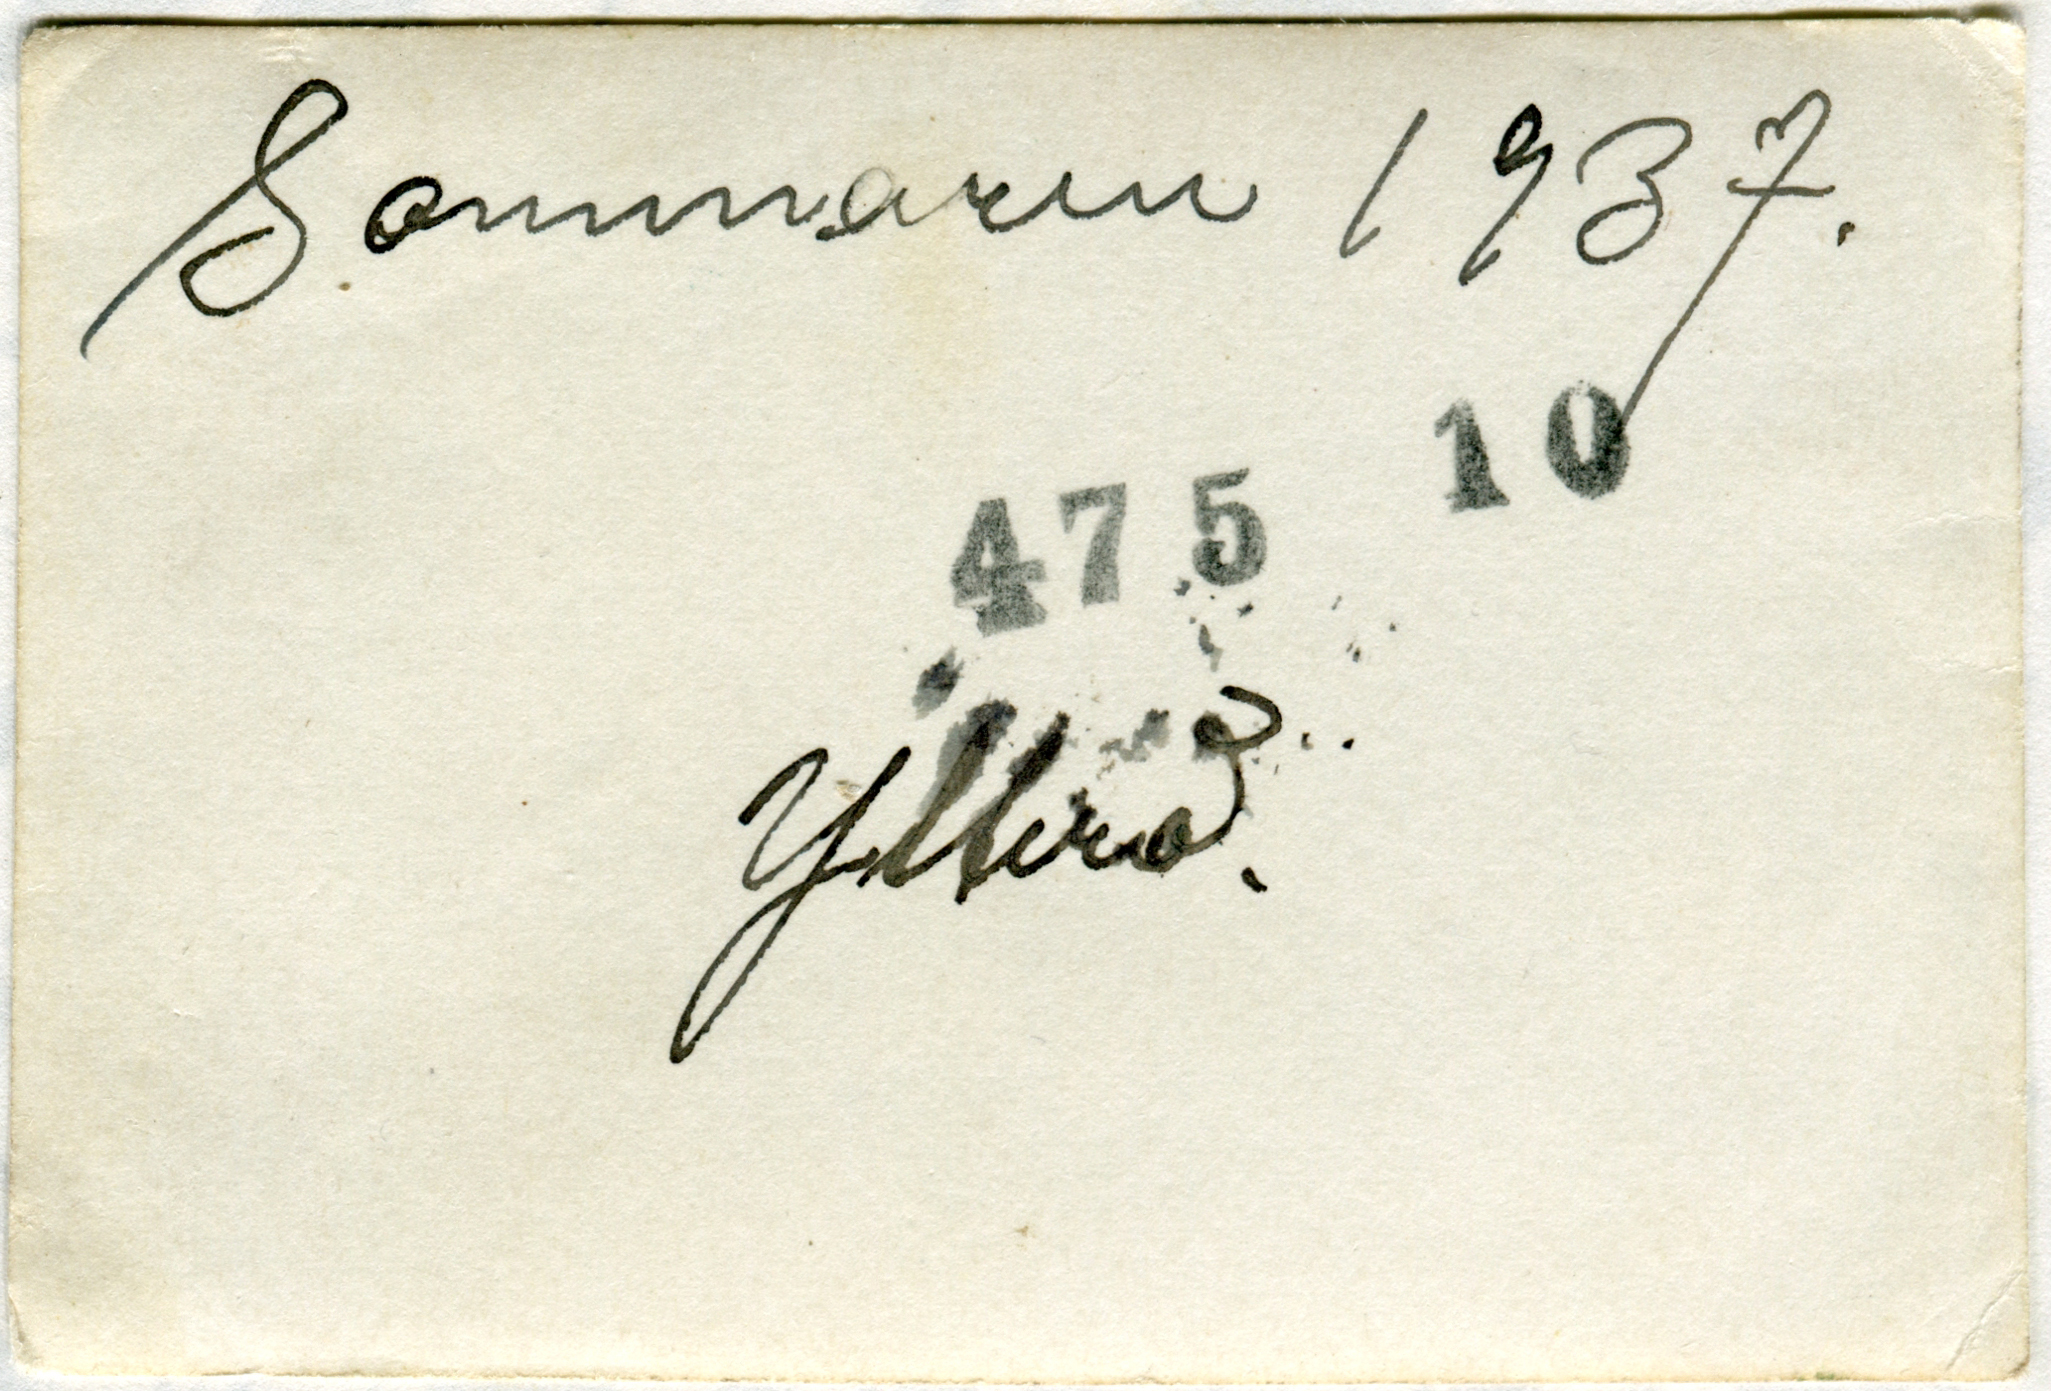 Sommaren 1937.
475 10
Ytterö.